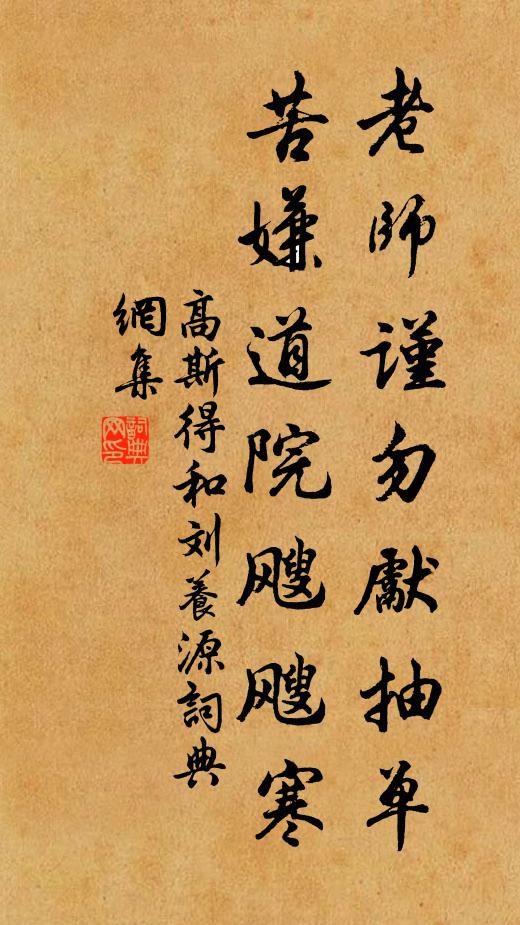 老師謹勿獻抽单
苦嫌道院颼颼寒
高斯得和刘養源詞典
網集
詞典網印